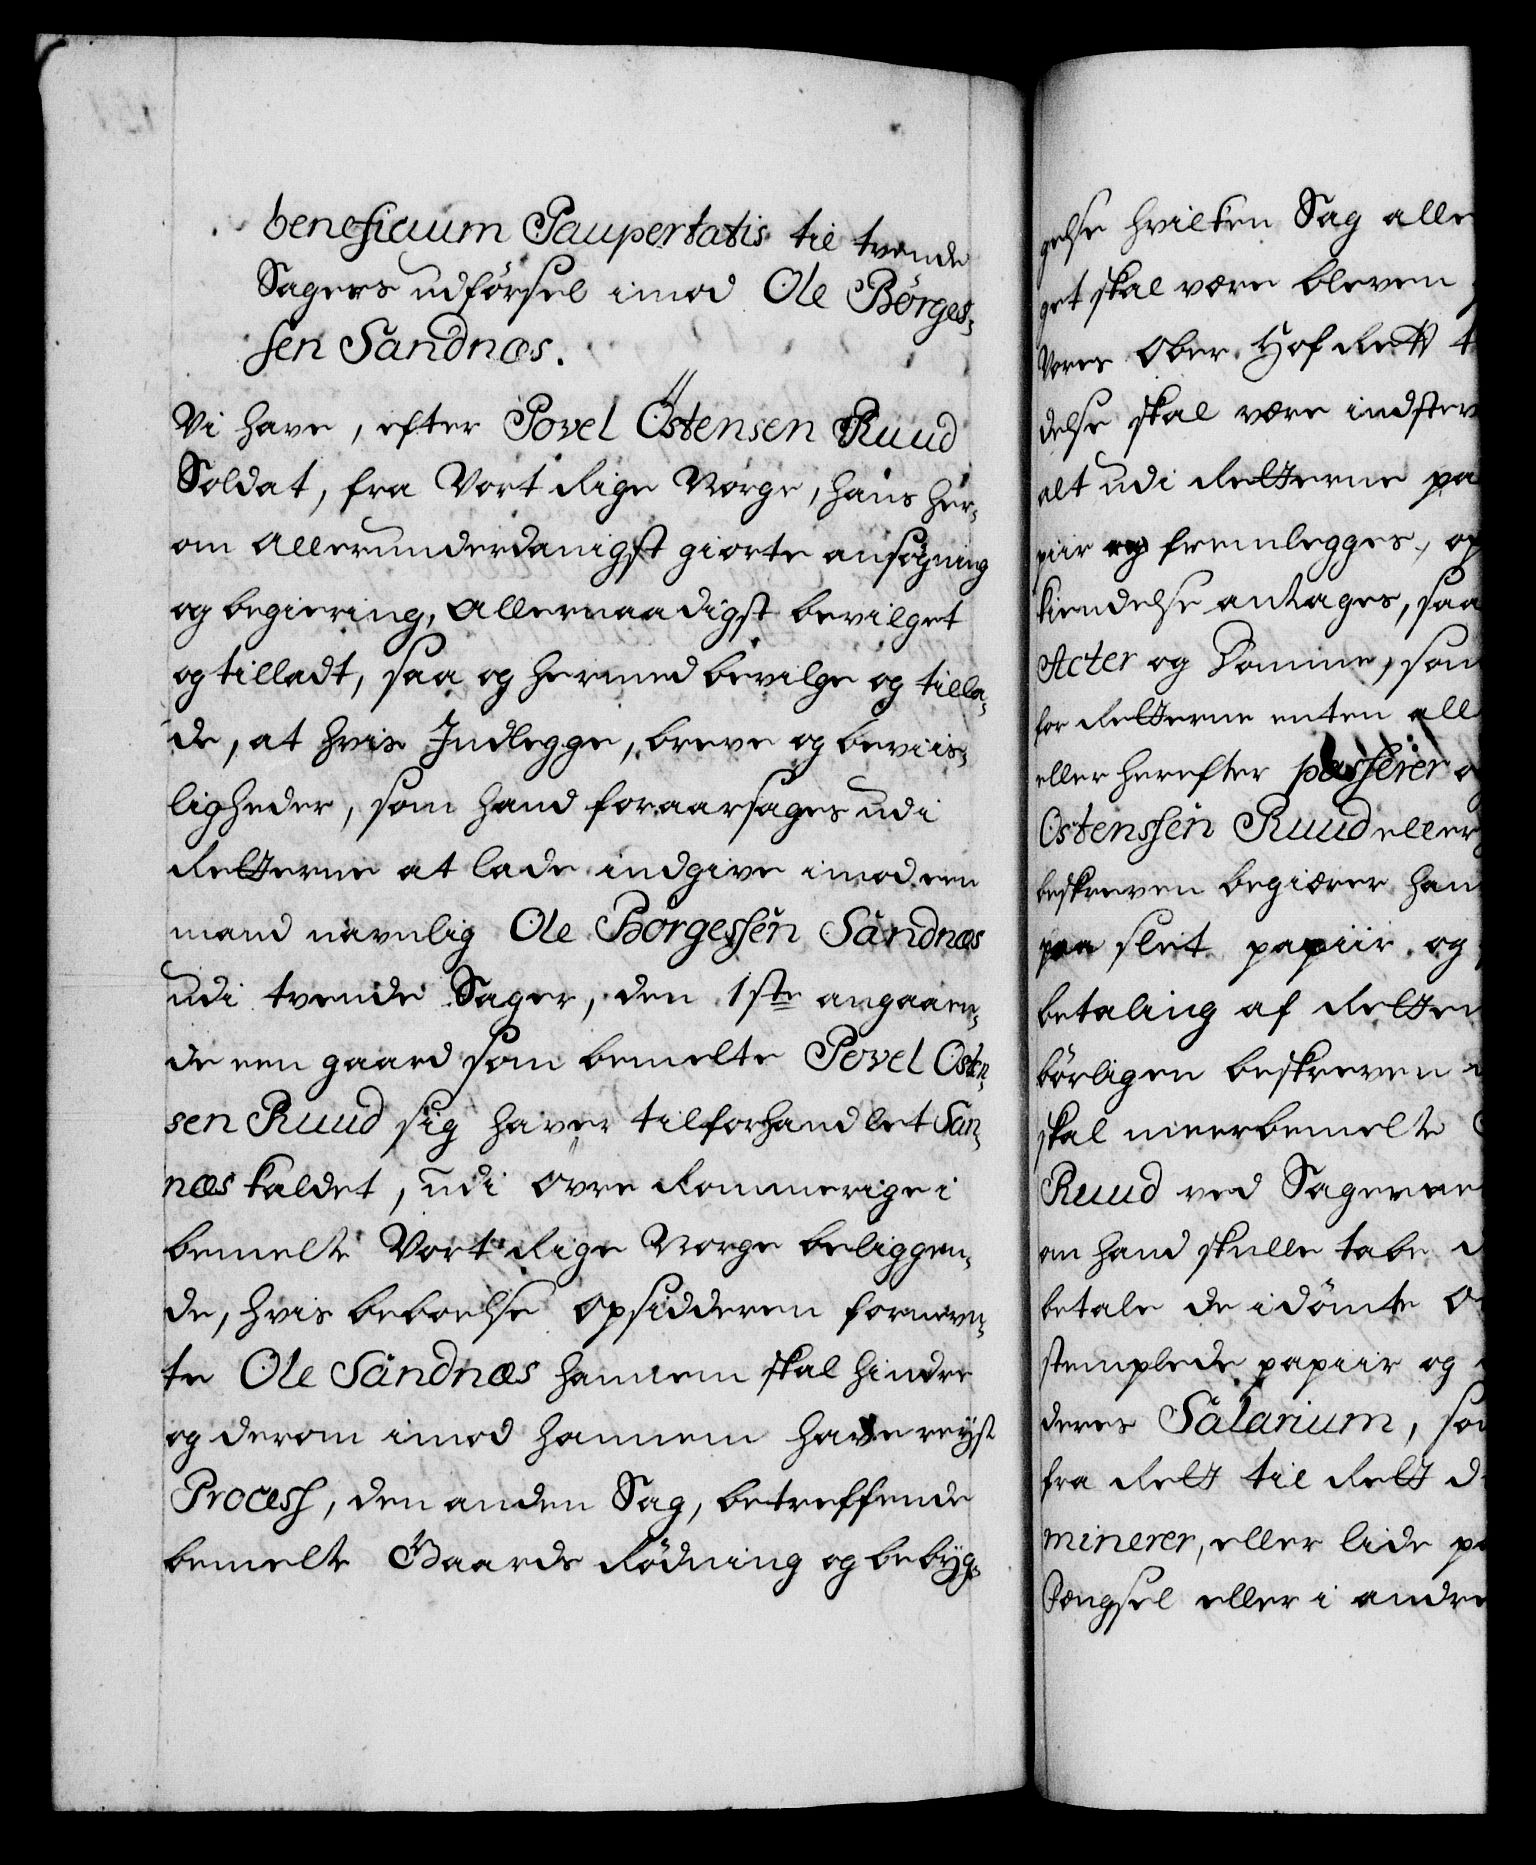 beneficium Paupertatis til tvende
Sagers udførsel imod Ole Børges-
sen Sandnæs.
Vi have, efter Povel Östensen Ruud
Soldat, fra Vort Rige Norge, hans her-
om allerunderdanigst giorte ansøgning
og begiering, allernaadigst bevilget
og tilladt, saa og hermed bevilge og tilla-
de, at hvis Indlegge, breve og beviis-
ligheder, som hand foraarsages udi
Retterne at lade indgive imod een
mand navnlig Ole Borgessen Sandnæs
udi tvende Sager, den 1ste angaaen-
de een gaard som bemelte Povel Osten-
sen Ruud sig haver tilforhandlet San-
næs kaldet, udi øvre Rommerige i
bemelte Vort Rige Norge beliggen-
de, hvis beboelse opsidderen fornevn-
te Ole Sandnæs hannem skal hindre
og derom imod hannem have reyst
Process, den anden Sag, betreffende
bemelte Gaards Rödning og bebyg-
gelse hvilken Sag alle
get skal være bleven
Vores Ober Hof Rett t
delse skal være indstev
alt udi Retterne pa
piir og fremlegges, op
kiendelse antages, saa
Acter og Domme, som
for Retterne enten all
eller herefter passerer o
Ostenssen Ruud eller
beskreven begiærer han
paa slet papiir og
betaling af Retten
börligen beskreven
skal meerbemelte
Ruud ved Sagerne
om hand skulle tabe d
betale de idömte O
stemplede papiir og
deres Salarium, som
fra Rett til Rett d
minerer, eller lide pa
Fængsel eller i andre